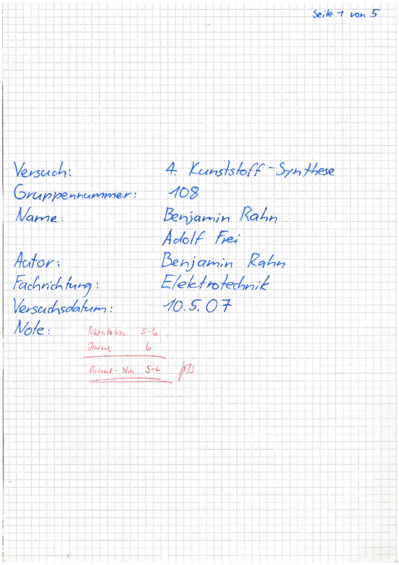 Seite 1 von 5
Versuch: 4. Kunststoff-Synthese
Gruppennummer: 108
Name: Benjamin Rahn
Adolf Frei
Autor: Benjamin Rahn
Fachrichtung: Elektrotechnik
Versuchsdatum: 10.5.07
Note: 5-6
6
5-6